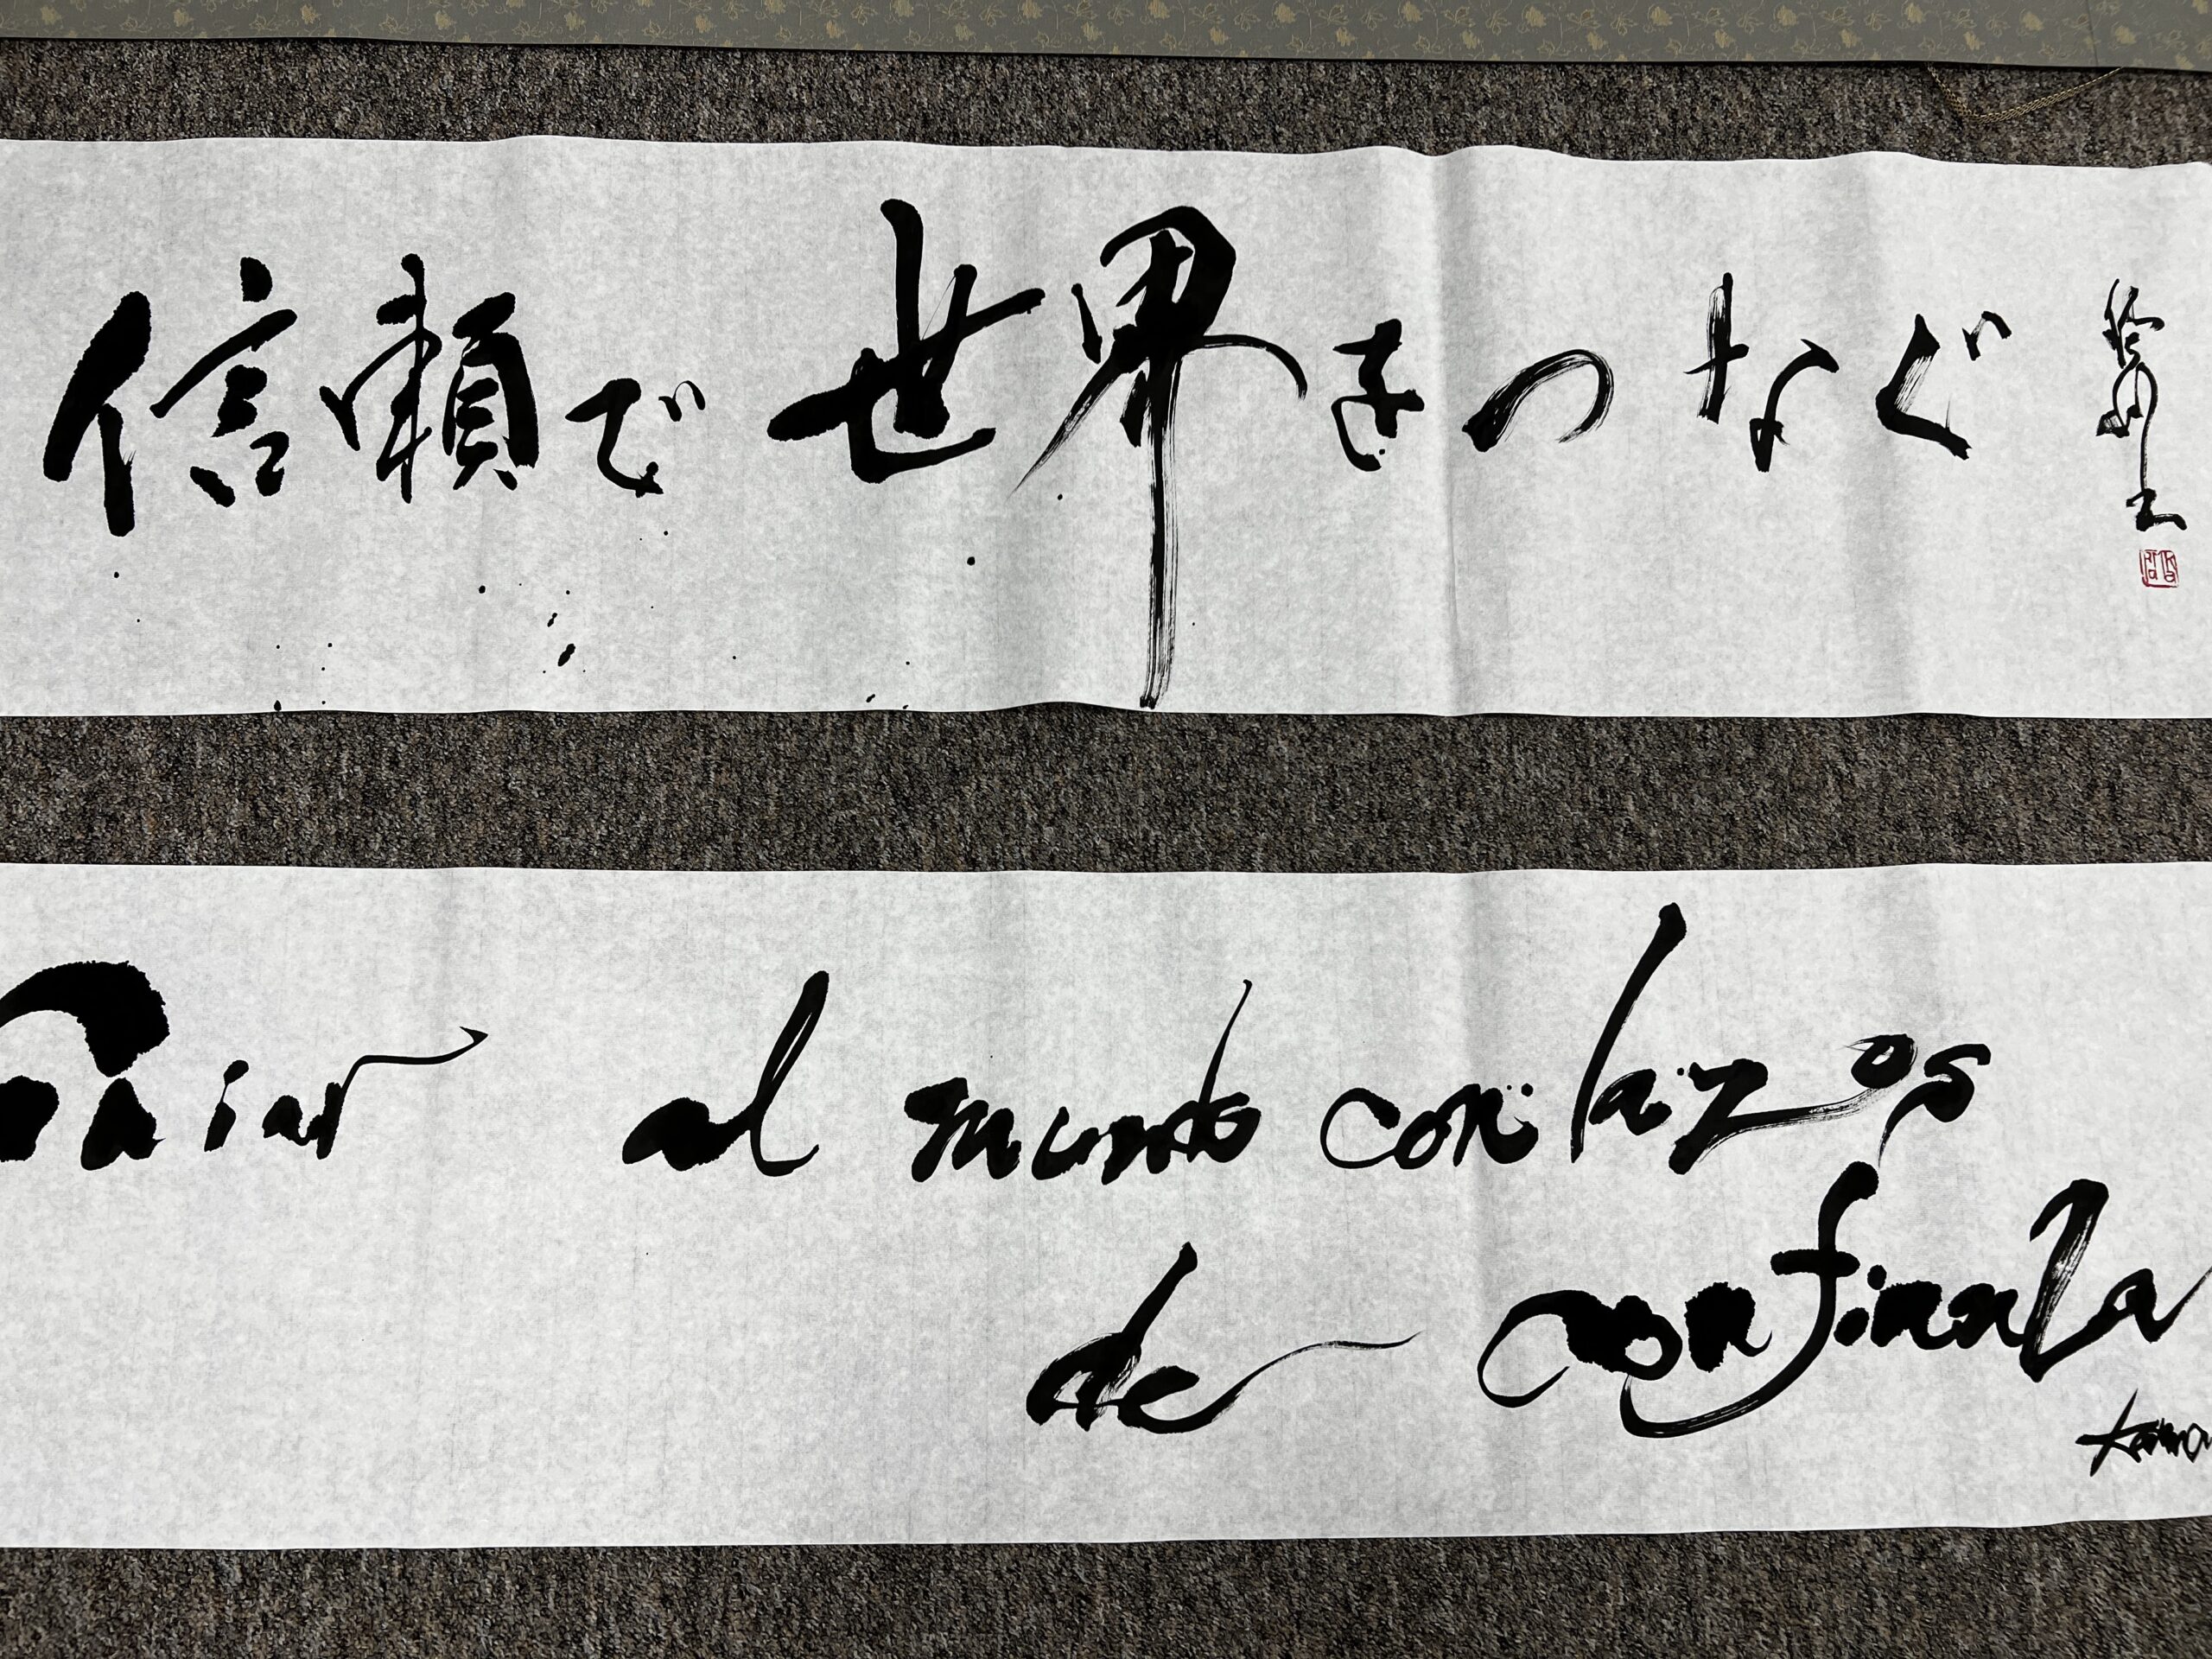 信頼で世界をつなぐ
unir al mundo con lazos
de confianza